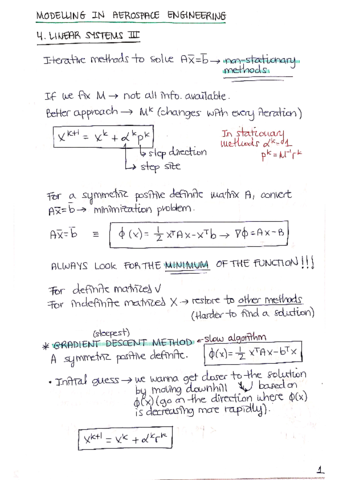 MODELLING IN AEROSPACE ENGINEERING
4. LINEAR SYSTEMS III
Iterative methods to solve Ax̄=b̄ → non-stationary methods.
If we fix M → not all info. available.
Better approach → Mᵏ (changes with every iteration)
xᵏ⁺¹ = xᵏ + αᵏpᵏ
→ step direction
→ step size
In stationary
methods αᵏ=1
pᵏ=M⁻¹rᵏ
For a symmetric positive definite matrix A, convert
Ax̄=b̄ → minimization problem.
Ax̄=b̄ ≡ ϕ(x) = 1/2 xᵀAx-xᵀb → ∇ϕ=Ax-B
ALWAYS LOOK FOR THE MINIMUM OF THE FUNCTION!!!
For definite matrized V
For indefinite matrized X → restore to other methods
(Harder to find a solution)
(steepest)
* GRADIENT DESCENT METHOD → slow algorithm
A symmetric positive definite. ϕ(x) = 1/2 xᵀAx-bᵀx
• Initial guess → we wanna get closer to the solution
by moving downhill based on
ϕ(x) (go on the direction where ϕ(x)
is decreasing more rapidly).
xᵏ⁺¹ = xᵏ + αᵏrᵏ
1